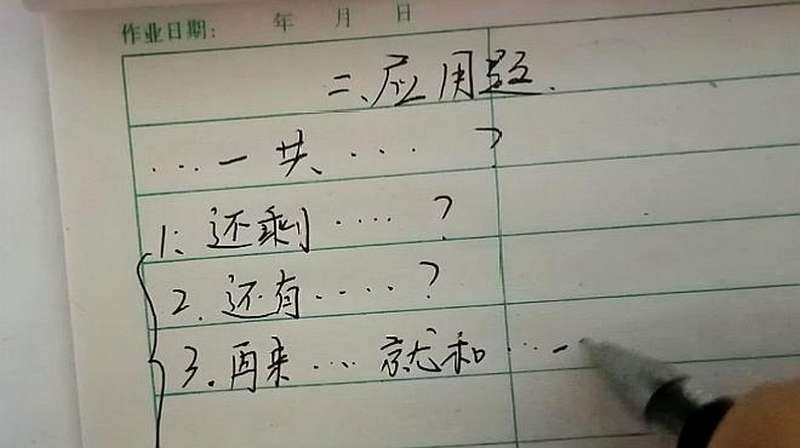 作业日期: 年 月 日
二、应用题.
...一共....?
1、还剩....?
2.还有.....?
3.再来....就和...一